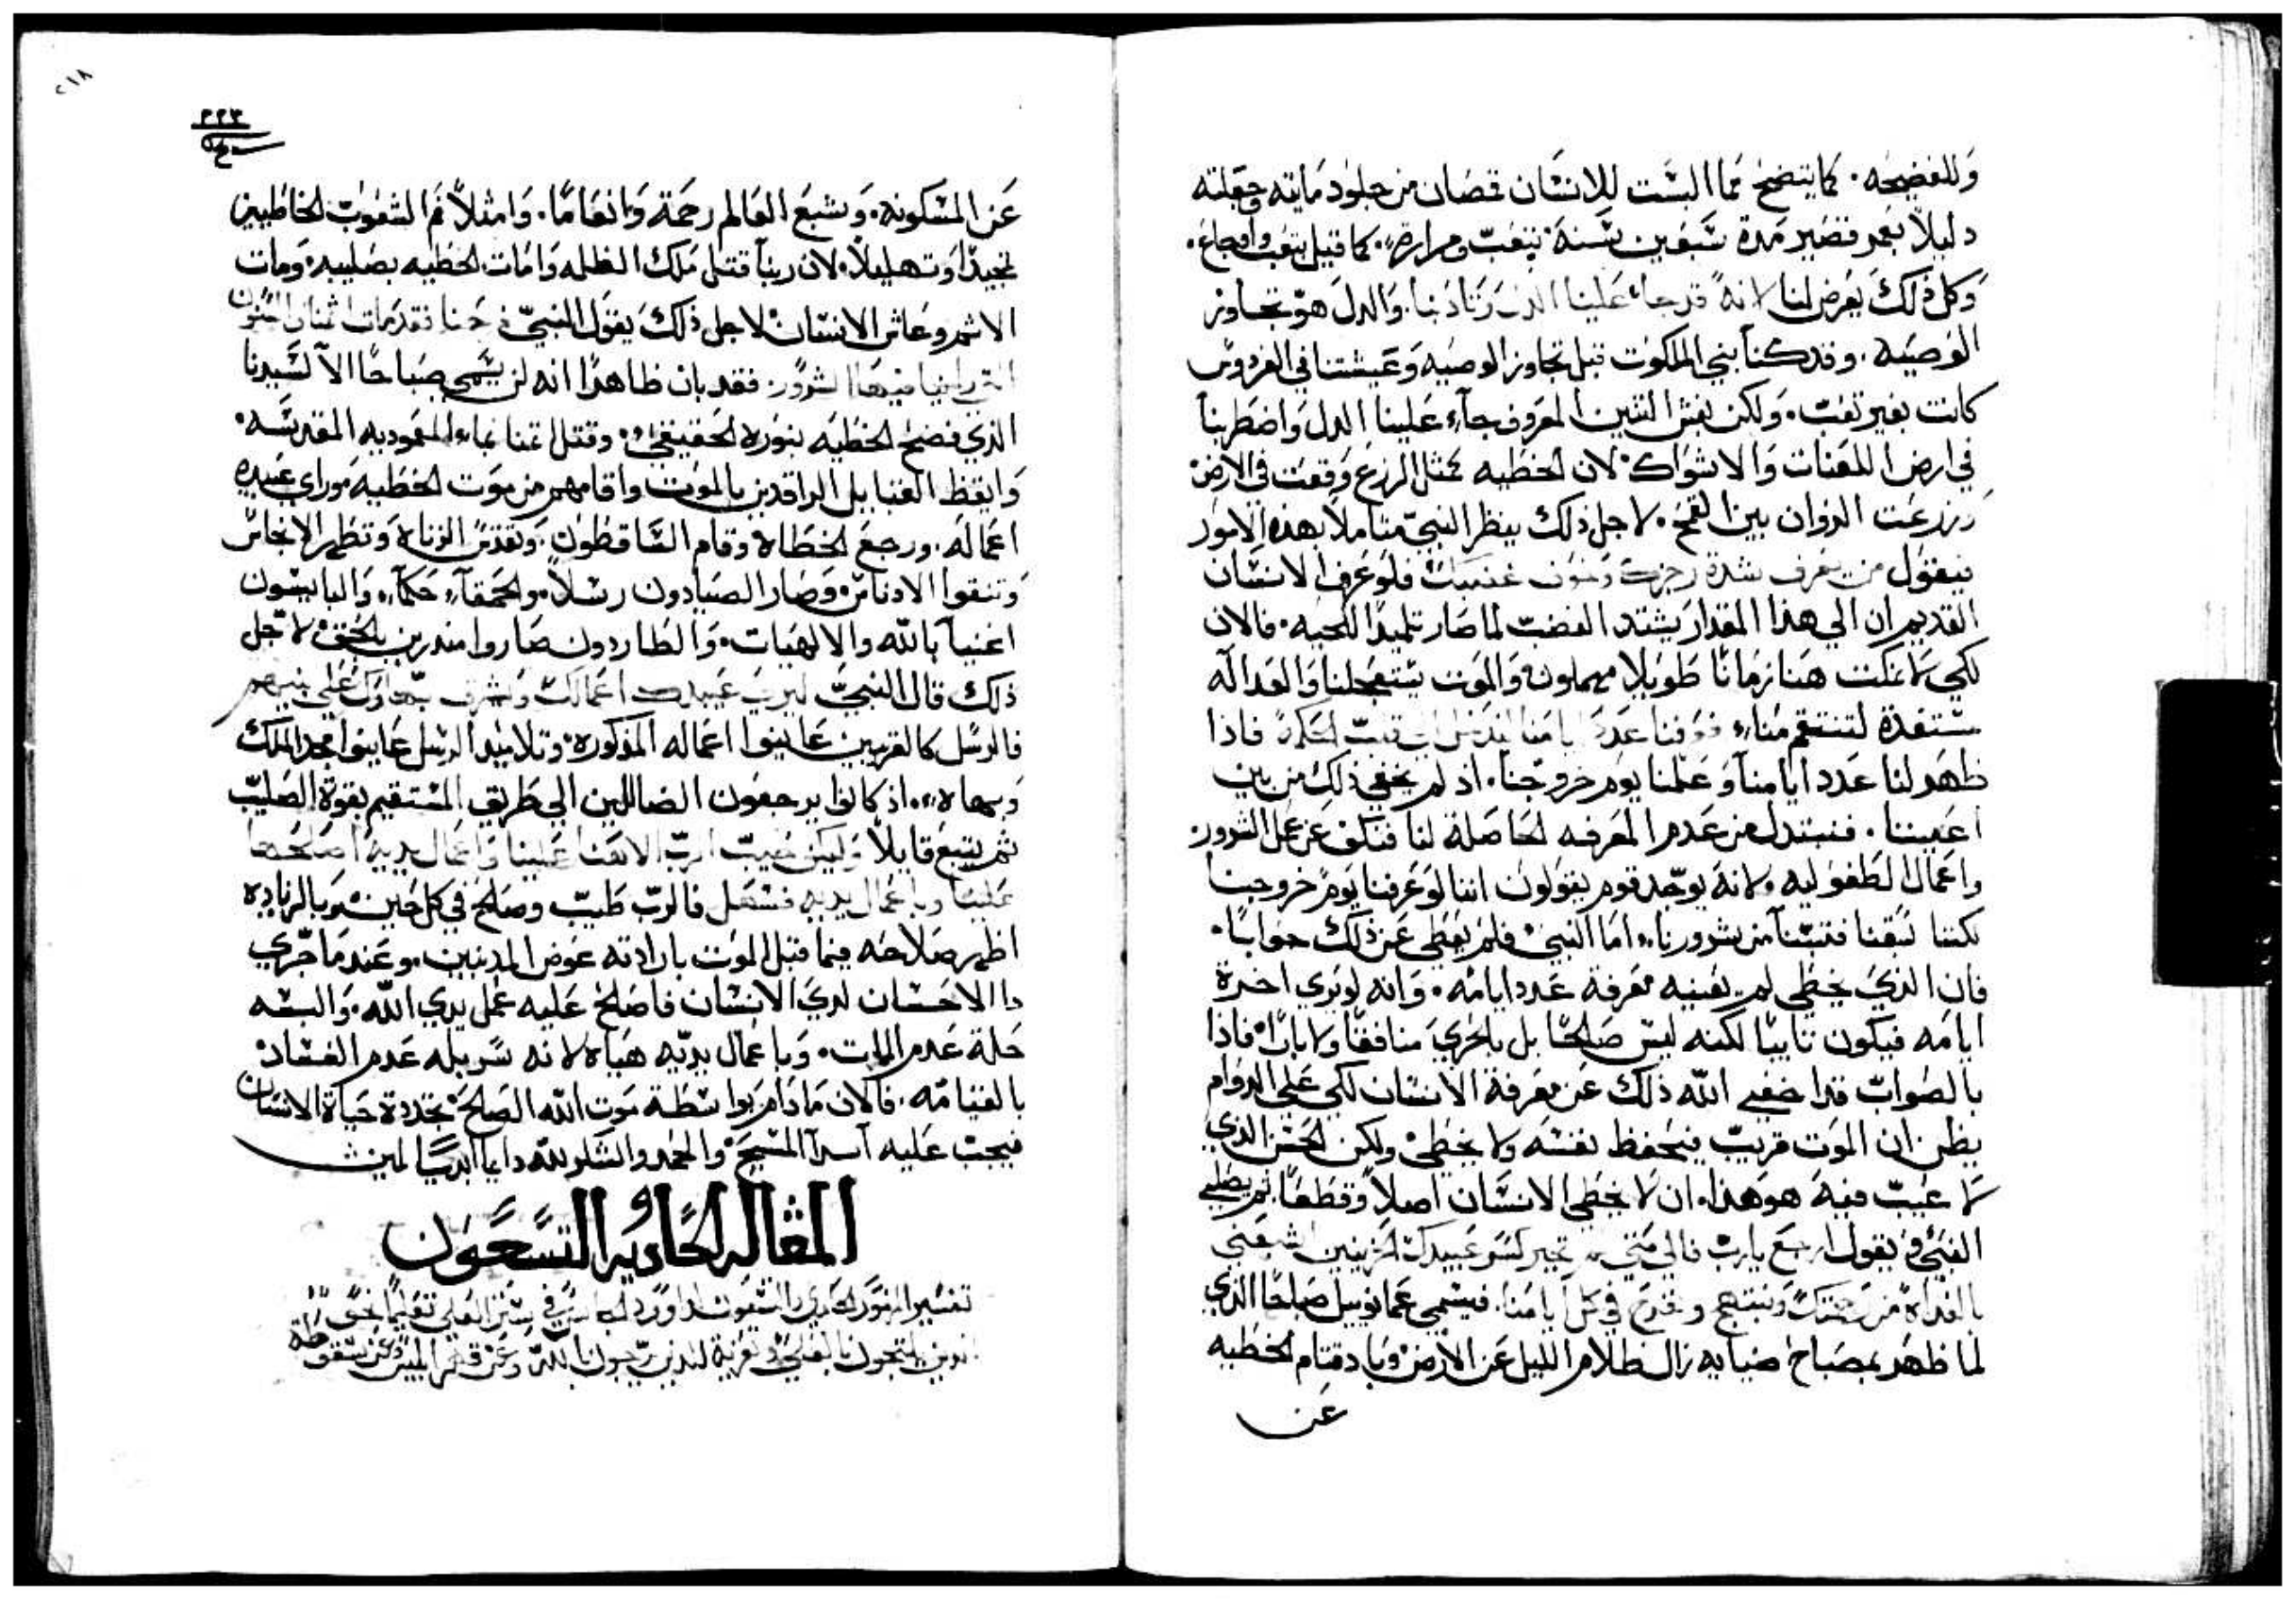 وللفضيحه. كما يتضح مما البست للانسان قمصان من جلود مايته وجعلته
دليلاً بعمر قصير مدة سبعين سنة بتعب ومرارة. كما قيل بتعب واوجاع.
وكل ذلك يعرض لنا لانه قد جاء علينا الذل وتادبنا. والدل هو تجاوز
الوصيه. وقد كنا بني الملكوت قبل تجاوز الوصيه وعيشتنا في الفردوس
كانت بغير تعب. ولكن بغش التنين المعروف جاء علينا الدل واضطربنا
في ارض اللعنات والاشواك لان الخطيه كمثال الزرع وقعت في الارض
وزرعت الزوان بين القمح. لاجل ذلك ينظر النبي متاملاً بهذه الامور
فيقول من يعرف شدة رجزك فلو عرف الانسان
القديم ان الي هذا المقدار يشتد الغضب لما صار تلميدًا للحيه. فالان
لكي لا نمكت هنا زمانًا طويلا مهملون والموت يستعجلنا والعداله
مستعدة لتنتقم منا فعرفنا عدد ايامنا الحكمة فاذا
ظهر لنا عدد ايامنا وعلمنا يوم خروجنا. اذ لم يخفي ذلك من بين
اعيننا. فنستدل من عدم المعرفه الحاصلة لنا فنكف عن عمل الشرور
واعمال الطفوليه ولانه يوجد قوم يقولون اننا لو عرفنا يوم خروجنا
لكنا سبقنا فتبنا من شرورنا. اما النبي فلم يعطي عن ذلك جوابًا.
فان الذي يخطي لم يعنيه معرفة عدد ايامه. وانه لو نوي اخرة
ايامه فيكون تايبًا لكنه ليس صالحًا بل بالحري منافقًا ولا بارًا فاذا
بالصواب قد اخفي الله ذلك عن معرفة الانسان لكي علي الدوام
يظن ان الموت قريب فيحفظ نفسه ولا يخطي ولكن الحسن الذي
لا عيب فيه هو هذا. ان لا يخطي الانسان اصلاً وقطعًا
النبي يقول ارجع يارب فالي متي عبيدك اشبعني
بالغداة من رحمتك ونبتهج ونفرح في كل ايامنا. فيسمي عمانوييل صباحًا الذي
لما ظهر بمصباح ضيايه زال ظلام الليل عن الارض وباد قتام الخطيه
عن
٢١٨
٢٢٣
عن المسكونه. وشبع العالم رحمة وانعامًا. وامتلا فم الشعوب الخاطيين
تمجيدًا وتهليلاً. لان ربنا قتل ملك الظلمه وامات الخطيه بصليبه. ومات
الاثم وعاش الانسان لاجل ذلك يقول النبي
التي راينا فيها الشرور. فقد بان ظاهرًا انه لن يسمي صباحًا الا لسيدنا
الذي فضح الخطيه بنوره الحقيقي. وقتل اثمنا بماء المعموديه المقدسه.
وايقظ القبايل الراقدين بالموت واقامهم من موت الخطيه وراي عبيده
اعماله. ورجع الخطاة وقام الساقطون. وتقدس الزناة وتطهر الانجاس
وتنقوا الادناس وصار الصيادون رسلاً. والحمقاء حكماء. واليابسون
اغنيا بالله والالهيات. والطاردون صاروا منذرين بالحق. لاجل
ذلك قال النبي لير عبيدك اعمالك واشرف علي بنيهم
فالرسل كالقريبين عاينوا اعماله المذكوره. وتلاميد الرسل عاينوا مجد الملك
وبهاه. اذ كانوا يرجعون الضالين الي طريق المستقيم بقوة الصليب
ثم يتبع قايلاً وليكن الرب الاهنا علينا واعمال يديه اصلحها
علينا وباعمال يديه فالرب طيب وصالح في كل حين بالزياده
اظهر صلاحه فيما قبل الموت بارادته عوض المدنبين. وعندما جري
دا الاحسان لدي الانسان فاصلح عليه عمل يدي الله. والبسه
حلة عدم المات. وباعمال يديه هياه لانه سربله عدم الفساد
بالقيامه. فالان مادام بواسطة موت الله الصالح تجددة حياة الانسان
فيجب عليه المسيح والحمد والشكر لله دايمًا ابديًا امين
المقاله الحاديه والتسعون
تفسير المزمور الحادي والتسعون لداوود في ستر العلي تعليمًا
الذين يلتجون بالعلي وتعزية للذين يرجون بالله وعن قهر